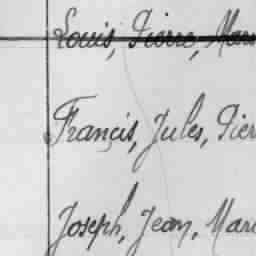 Louis, Pierre, Mari
Francis, Jules, Pier
Joseph, Jean, Mari